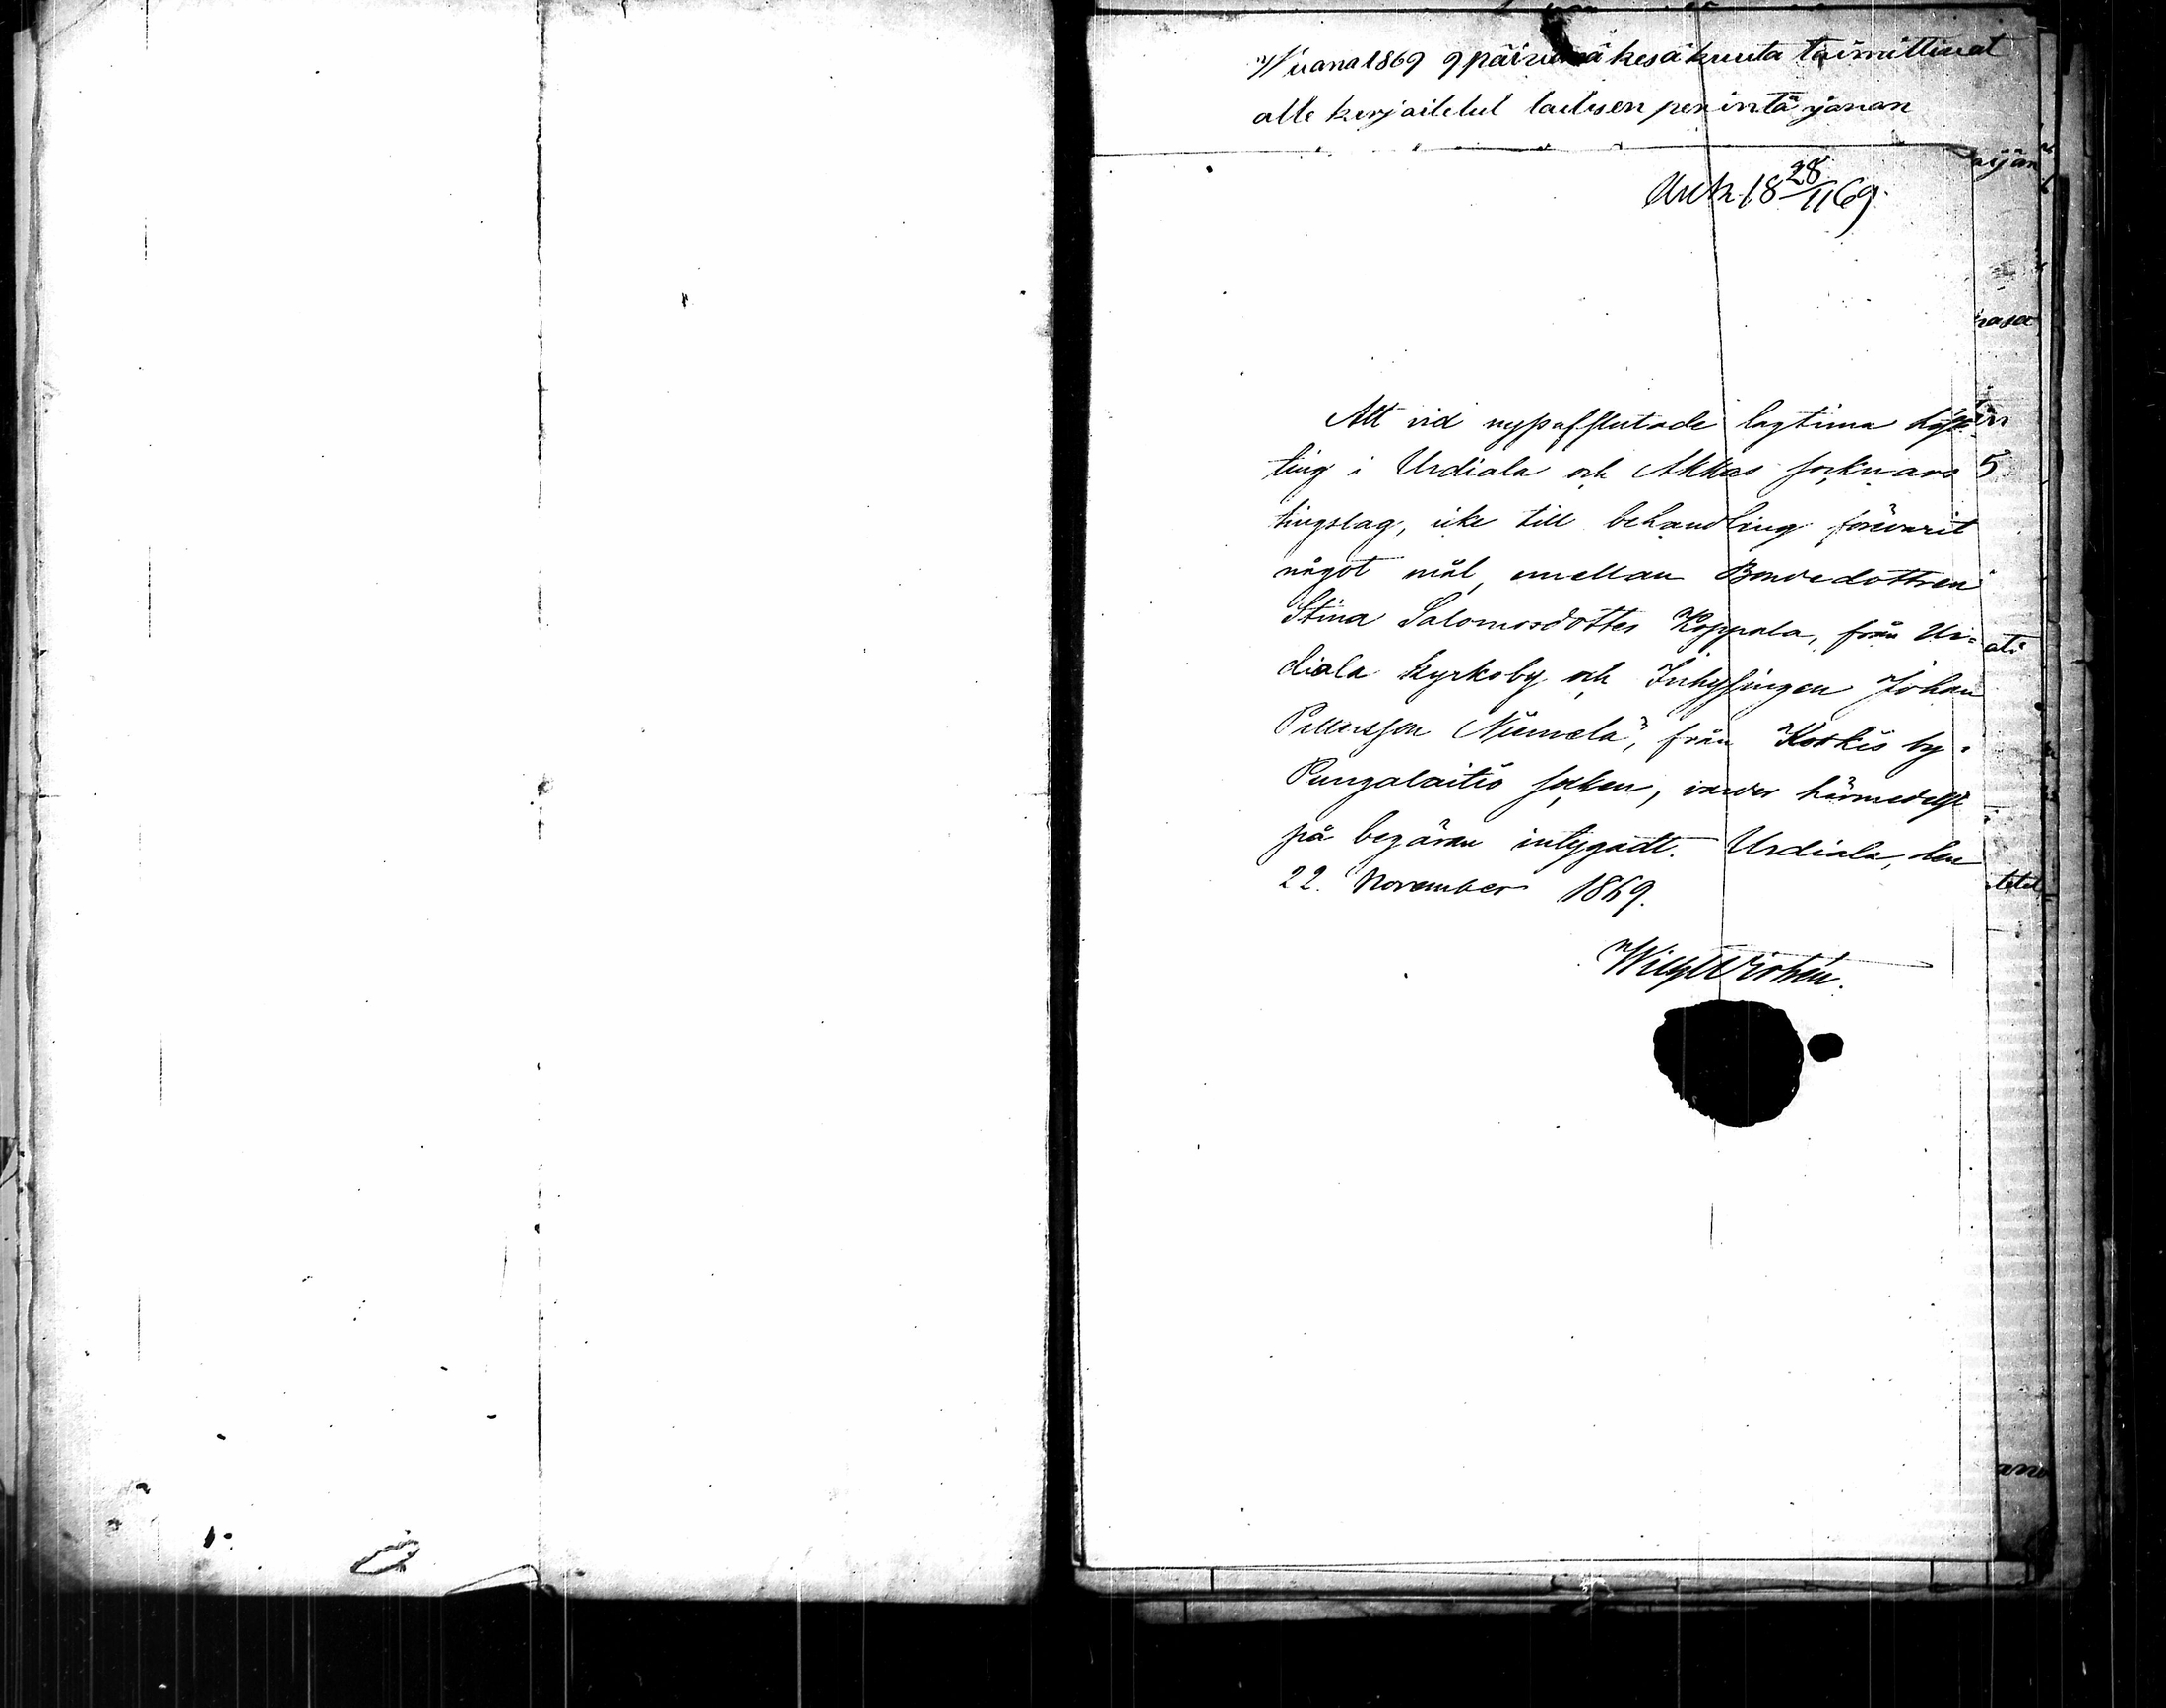 Wuona 1869 9 päivänä kesäkuuta toimittivat
alle kirjoitetut laillisen perintä
Ank. 18 28/11 69.
Att vid nyssafslutade lagtima höste-
ting i Urdiala och Akkas socknars
tingslag, icke till behandling förevarit
något mål, emellan Bondedottren
Stina Salomosdotter Koppala, från Ur=
diala Kyrkoby och Inhysingen Johan
Pettersson Niemelä, från Koskis by
Pungalaitio socken, varder härmedelst
på begäran intygadt. Urdiala, den
22. November 1869.